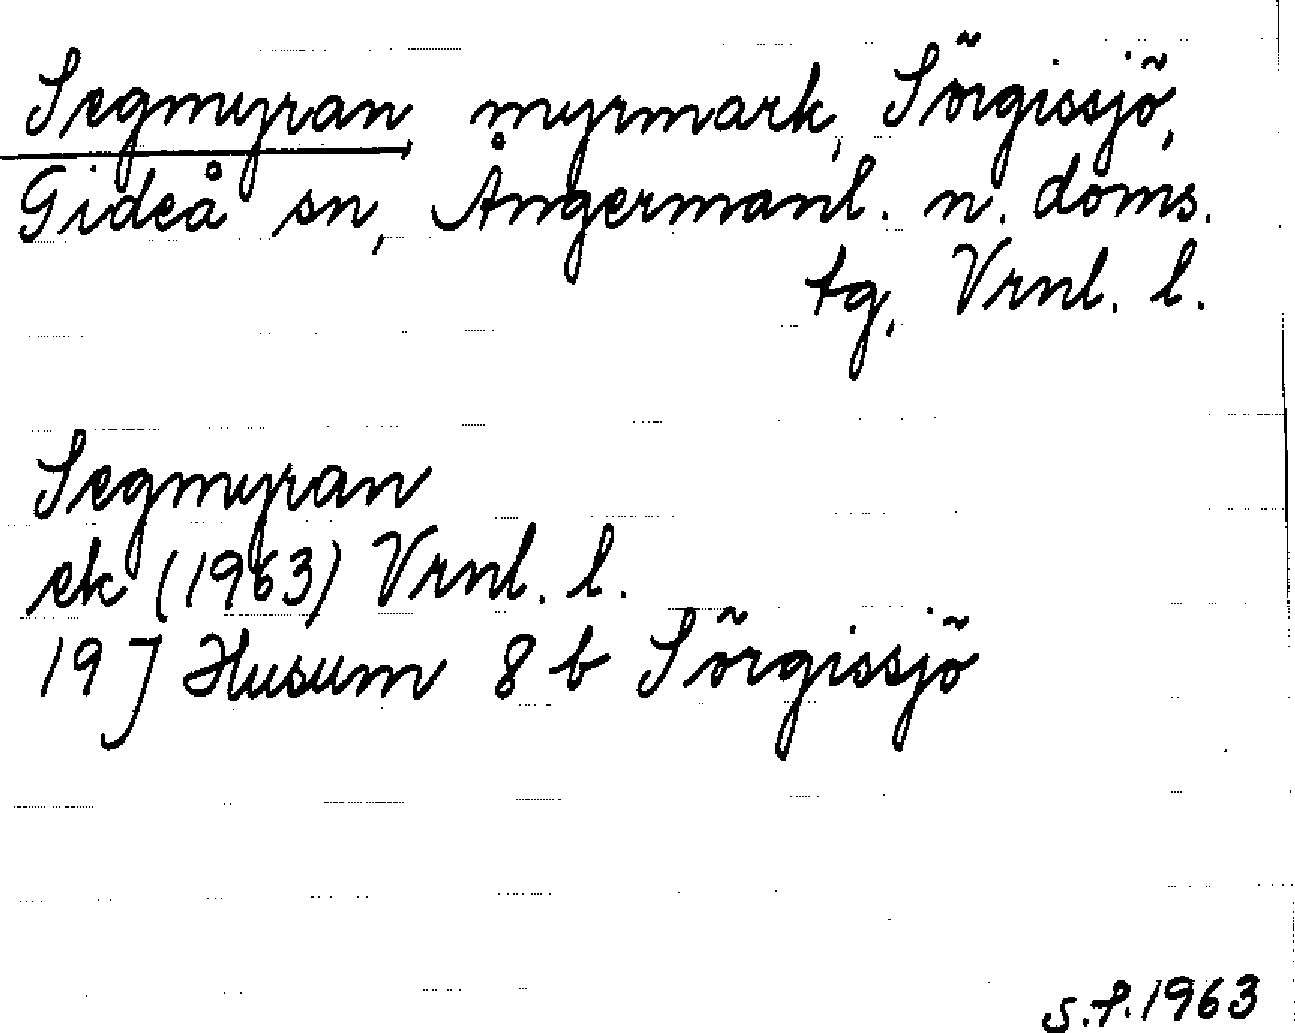 Segmyran, myrmark, Sörgissjö,
Gideå sn, Ångermanl. n. doms.
tg, Vrnl. l.
Segmyran
ek (1963) Vrnl. l.
19 J Husum 8 b Sörgissjö
S.F. 1963